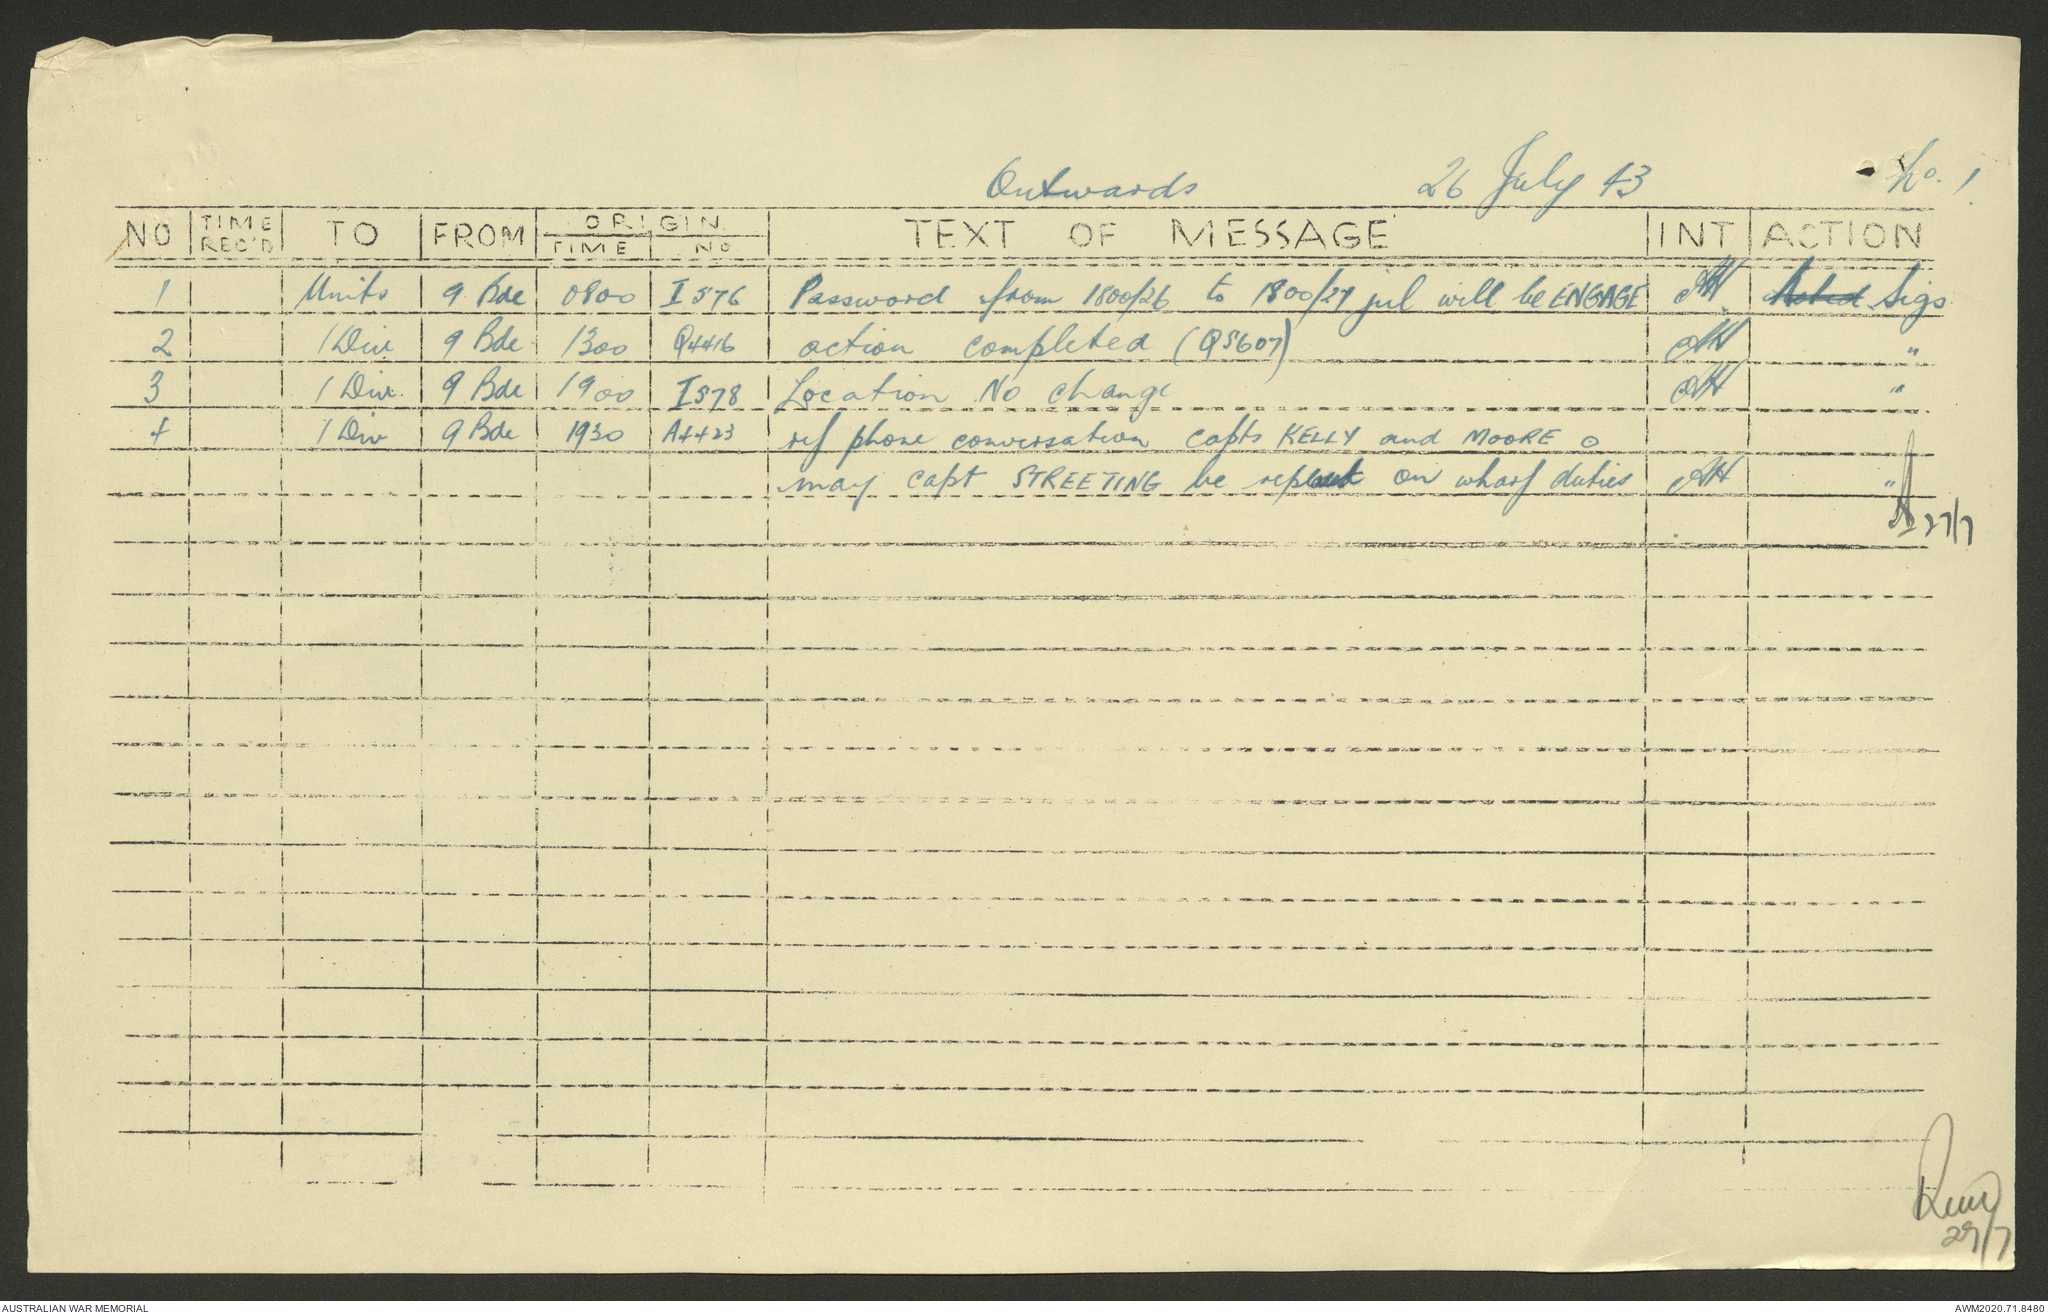 Outwards 26 July 43 No. 1
NO TIME REC'D TO FROM ORIGIN TIME NO TEXT OF MESSAGE INT ACTION
1 Units 9 Bde 0800 I576 Password from 1800/26 to 1800/27 jul will be ENGAGE Sigs
2 1 Div 9 Bde 1300 Q4416 action completed (Q5607) "
3 1 Div 9 Bde 1900 I578 Location No change "
4 1 Div 9 Bde 1930 A4423 ref phone conversation capts KELLY and MOORE o
may capt STREETING be on wharf duties "
27/7
29/7
AUSTRALIAN WAR MEMORIAL AWM2020.71.8480